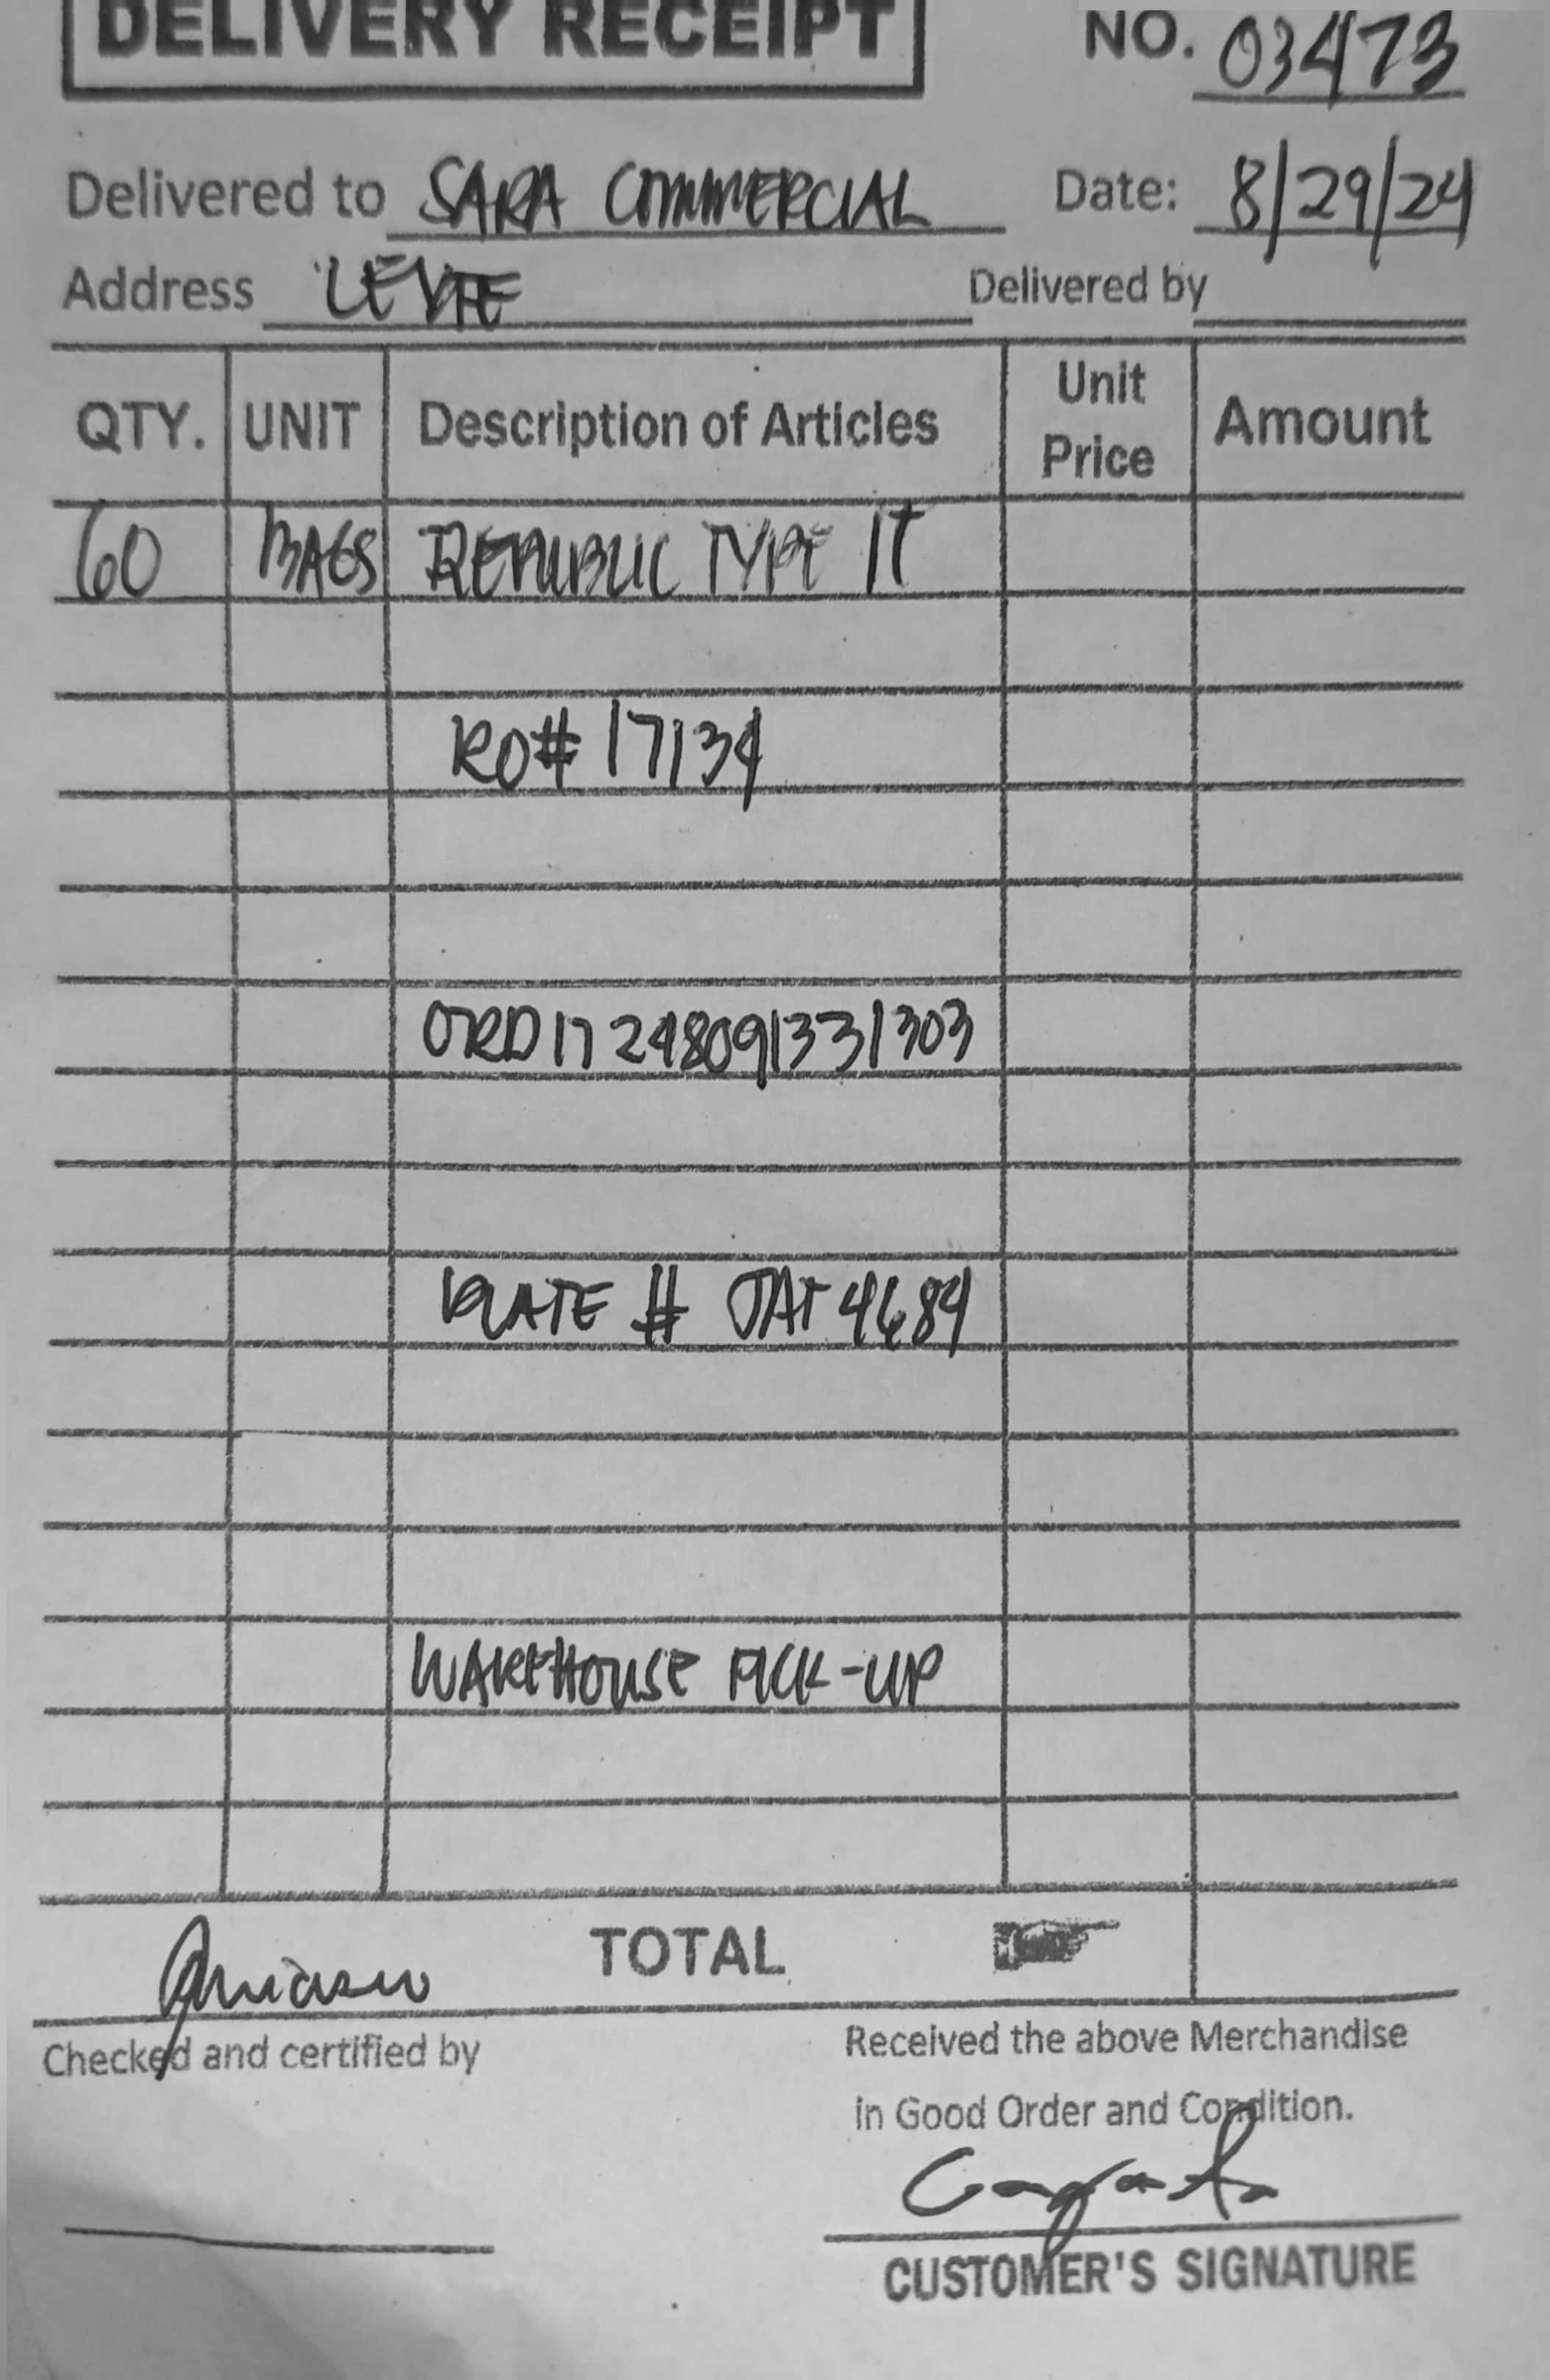 DELIVERY RECEIPT NO. 03473
Delivered to SARA COMMERCIAL Date: 8/29/24
Address LEYTE Delivered by
QTY. UNIT Description of Articles Unit Price Amount
60 BAGS REPUBLIC TYPE 1T
RO# 17134
ORD17248091331303
PLATE # JAT 4684
WAREHOUSE PICK-UP
TOTAL
Checked and certified by
Received the above Merchandise
in Good Order and Condition.
CUSTOMER'S SIGNATURE